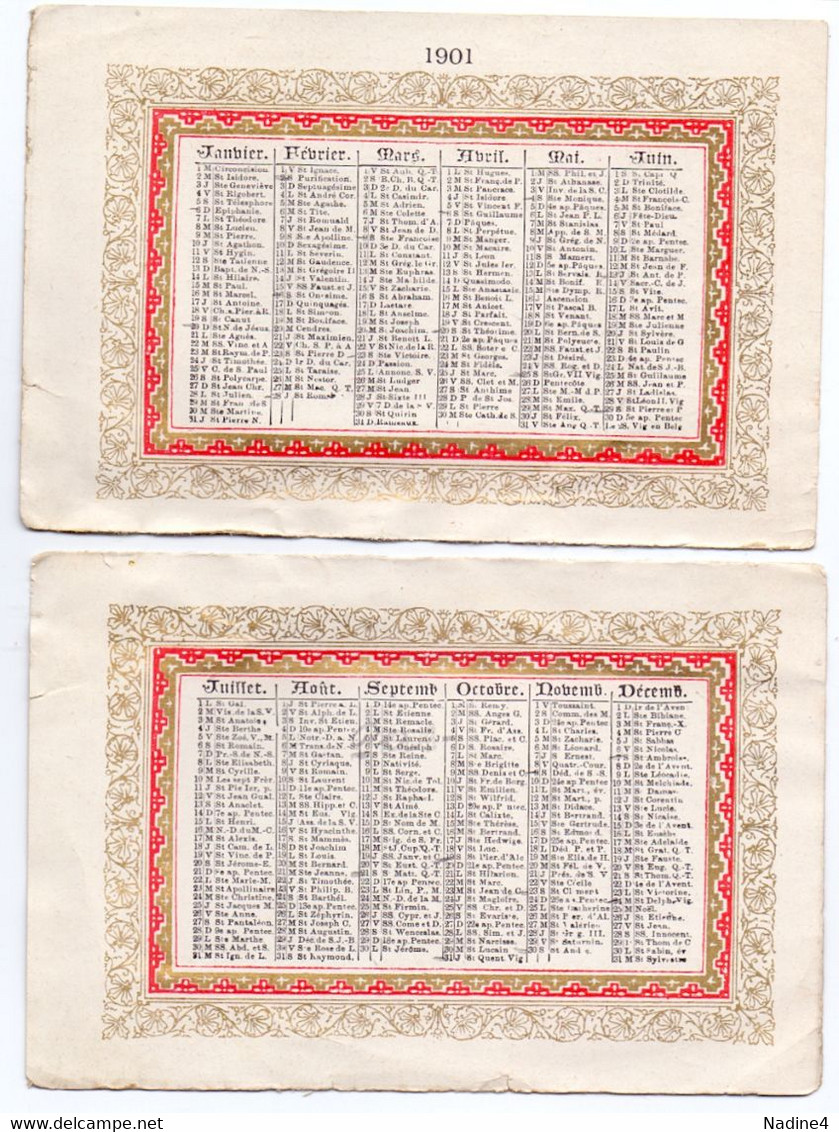 1901
Janvier.
1 M Circoncision
2 M St Isidore
3 J Ste Geneviève
4 V St Rigobert
5 S St Télesphore
6 D Epiphanie.
7 L St Théodore
8 M St Lucien
9 M St Pierre.
10 J St Agathon.
11 V St Hygin.
12 S Ste Tatienne
13 D Bapt. de N.-S.
14 L St Hilaire.
15 M St Paul.
16 M St Marcel.
17 J St Antoine
18 V Ch.s.Pier.à R.
19 S St Canut
20 D St N. de Jésus.
21 L Ste Agnès.
22 M SS. Vinc. et A
23 M St Raym. de P.
24 J St Timothée.
25 V C. de S. Paul
26 S St Polycarpe.
27 D St Jean Chr.
28 L St Julien.
29 M St Fran. de S
30 M Ste Martine.
31 J St Pierre N.
Février.
1 V St Ignace.
2 S Purification.
3 D Septuagésime
4 L St André Cor.
5 M Ste Agathe.
6 M St Tite.
7 J St Romuald
8 V St Jean de M.
9 S Ste Apolline.
10 D Sexagésime.
11 L St Séverin
12 M St Gaudence.
13 M St Grégoire II
14 J St Valentin.
15 V SS. Faust. et J
16 S St Onésime.
17 D Quinquagés.
18 L St Siméon
19 M St Boniface.
20 M Cendres.
21 J St Maximien.
22 V Ch. S. P. à A
23 S St Pierre D
24 D 1r D. du Car.
25 L St Taraise.
26 M St Nestor.
27 M St Mac. Q. T.
28 J St Roma
Mars.
1 V St Aub. Q.-T.
2 S B. Ch. B. Q.-T.
3 D 2e D. du Car.
4 L St Casimir.
5 M St Adrien.
6 M Ste Colette
7 J St Thom. d'A
8 V St Jean de D.
9 S Ste Francoise
10 D 3e D. du Car.
11 L St Constant.
12 M St Grég. le Gr.
13 M Ste Euphras.
14 J Ste Mathilde.
15 V St Zacharie.
16 S St Abraham.
17 D Laetare
18 L St Anselme.
19 M St Joseph
20 M St Joachim.
21 J St Benoit L.
22 V St Nic. de la R.
23 S Ste Victoire.
24 D Passion.
25 L Annonc. S. V.
26 M St Ludger
27 M St Jean.
28 J St Sixte III
29 V 7 D. de la V
30 S St Quirin
31 D Rameaux.
Avril.
1 L St Hugues.
2 M St Franç. de P.
3 M St Pancrace.
4 J St Isidore
5 V St Vincent F.
6 S St Guillaume
7 D Pâques.
8 L St Perpétue.
9 M St Manger.
10 M St Macaire.
11 J St Léon
12 V St Jules 1er.
13 S St Hermen.
14 D Quasimodo.
15 L Ste Anastasie.
16 M St Benoit L.
17 M St Anicet.
18 J St Parfait.
19 V St Crescent.
20 S St Théotime.
21 D 2e ap. Pâques
22 L SS. Soter e C
23 M St Georges.
24 M St Fidèle.
25 J St Marc.
26 V SS. Clet et M
27 S St Anthime
28 D P de St Jos.
29 L St Pierre
30 M Ste Cath. de S.
Mai.
1 M SS. Phil. et J.
2 J St Athanase.
3 V Inv. de la S. C.
4 S Ste Monique.
5 D 4e ap. Pâques.
6 L St Jean P. L.
7 M St Stanislas
8 M App. de S. M
9 J St Grég. de N.
10 V St Antonin.
11 S St Mamert.
12 D 5e ap. Pâques.
13 L St Servais.
14 M St Bonif.
15 M Ste Dymp.
16 J Ascension
17 V St Pascal B.
18 S St Venant.
19 D 6e ap. Pâques
20 L St Bern. de S.
21 M St Polyeucte.
22 M SS. Faust. et J
23 J St Désiré.
24 V SS. Rog. et D.
25 S St Gr. VII. Vig.
26 D Pentecôte
27 L Ste M.-M d P.
28 M St Emile.
29 M St Max. Q.-T.
30 J St Félix.
31 V Ste Ang Q.-T
Juin.
1 S S. Capr. Q
2 D Trinité.
3 L Ste Clotilde.
4 M St François-C.
5 M St Boniface.
6 J Fête-Dieu.
7 V St Paul
8 S St Médard.
9 D 2e ap. Pentec.
10 L Ste Marguer.
11 M St Barnabé.
12 M St Jean de F.
13 J St Ant. de P.
14 V Sac.-C. de J.
15 S St Vite.
16 D 3e ap. Pentec.
17 L St Avit.
18 M SS. Marc et M
19 M Ste Julienne
20 J St Sylvère.
21 V St Louis de G
22 S St Paulin
23 D 4e ap. Pentec
24 L Nat. de S. J.-B.
25 M St Guillaume
26 M SS. Jean et P.
27 J St Ladislas
28 V St Léon II. Vig
29 S St Pierre et P
30 D 5e ap. Pentec
Le 28. Vig en Belg
Juillet.
1 L St Gal.
2 M Vis. de la S. V.
3 M St Anatole
4 J Ste Berthe
5 V Ste Zoé, V., M.
6 S St Romain.
7 D Pr.-S. de N.-S.
8 L Ste Elisabeth.
9 M St Cyrille.
10 M Les sept Frèr.
11 J St Pie Ier, p.
12 V St Jean Gual.
13 S St Anaclet.
14 D 7e ap. Pentec.
15 L St Henri.
16 M N.-D. du M.-C.
17 M St Alexis.
18 J St Cam. de L.
19 V St Vinc. de P.
20 S St Jérome-E.
21 D 8e ap. Pentec.
22 L Ste Marie-M.
23 M St Apollinaire
24 M Ste Christine.
25 J St Jacques M.
26 V Ste Anne.
27 S St Pantaléon.
28 D 9e ap. Pentec.
29 L Ste Marthe
30 M SS. Abd. et S.
31 M St Ign. de L.
Août.
1 J St Pierre a. L.
2 V St Alph. de L.
3 S Inv. St Etien.
4 D 10e ap. Pentec.
5 L Notr.-D. a. N.
6 M Trans. de N.-S
7 M St Gaétan.
8 J St Cyriaque,
9 V St Romain.
10 S St Laurent
11 D 11e ap. Pentec.
12 L Ste Claire.
13 M SS. Hipp. et C
14 M St Eus. Vig.
15 J Ass. de la S. V.
16 V St Hyacinthe
17 S St Mammès.
18 D St Joachim
19 L St Louis
20 M St Bernard.
21 M Ste Jeanne,
22 J St Timothée.
23 V St Philip. B.
24 S St Barthél.
25 D 13e ap. Pentec.
26 L St Zéphyrin,
27 M St Joseph C.
28 M St Augustin.
29 J Déc. de S. J.-B
30 V Ste Rose de L.
31 S St Raymond.
Septemb
1 D 14e ap. Pentec
2 L St Étienne.
3 M St Remacle.
4 M Ste Rosalie
5 J St Laurent J
6 V St Onésiph
7 S Ste Reine.
8 D Nativité.
9 L St Serge.
10 M St Nic. de Tol.
11 M St Théodore.
12 J St Raphaël.
13 V St Aimé
14 S Ex. de la Ste C
15 D St Nom de M.
16 L SS. Corn. et C.
17 M Stig. de S. Fr.
18 M St J. Cup. Q.-T.
19 J SS. Janv. et C.
20 V St Eust. Q.-T.
21 S St Matt. Q.-T
22 D 17e ap. Pentec.
23 L St Lin, P., M.
24 M N.-D. de la M.
25 M St Firmin.
26 J SS. Cypr. et J.
27 V SS. Come et D.
28 S St Wenceslas.
29 D 18e ap. Pentec.
30 L St Jérôme.
Octobre.
1 M S. Remy.
2 M SS. Anges G.
3 J St Gérard.
4 V St Fr. d'Ass.
5 S SS. Plac. et C.
6 D S. Rosaire.
7 L St Marc.
8 M Ste Brigitte
9 M SS. Denis et C
10 J St Fr. de Borg.
11 V St Emilien.
12 S St Wilfrid.
13 D 20e ap. Pentec.
14 L St Calixte.
15 M Ste Thérèse.
16 M St Bertrand.
17 J Ste Hedwige
18 V St Luc.
19 S St Pier. d'Alc
20 D 21e ap. Pentec.
21 L St Hilarion.
22 M St Marc.
23 M St Jean de C
24 J St Magloire.
25 V SS. Chr. et D.
26 S St Evariste.
27 D 22e ap. Pentec.
28 L SS. Sim. et J.
29 M St Narcisse.
30 M St Lucain
31 J St Quent Vig
Novemb.
1 V Toussaint.
2 S Comm. des M.
3 D 23e ap. Pentec.
4 L St Charles.
5 M St Zacharie.
6 M St Léonard.
7 J St Ernest.
8 V Quatr.-Cour.
9 S Déd. de S.-S
10 D 24e ap. Pentec
11 L St Mart., év.
12 M St Mart., p.
13 M St Didace.
14 J St Bertrand.
15 V Ste Gertrude.
16 S St Edmond.
17 D 25e ap. Pentec.
18 L Déd. P. et P.
19 M Ste Elis. de H.
20 M St Fél. de V.
21 J Prés. de S. V
22 V Ste Cécile
23 S St Clément
24 D 26e ap. Pentec.
25 L Ste Catherine
26 M St Pier. d'Al.
27 M St Valérien
28 J St Grég. III.
29 V St Saturnin.
30 S St André
Décemb.
1 D 1r de l'Aven
2 L Ste Bibiane.
3 M St Franç.-X.
4 M St Pierre C
5 J St Sabbas
6 V St Nicolas.
7 S St Ambroise.
8 D 2e de l'Avent.
9 L Ste Léocadie.
10 M St Melchiade
11 M S Damas
12 J St Corentin
13 V Ste Lucie.
14 S St Nicaise.
15 D 3e de l'Avent.
16 L St Eusèbe
17 M Ste Adélaïde
18 M St Grat. Q.T
19 J Ste Fauste.
20 V St Eug. Q.-T.
21 S St Thom. Q.-T
22 D 4e de l'Avent.
23 L St Victorine.
24 M St Delph. Vig.
25 M Noël.
26 J St Etiène.
27 V St Jean.
28 S SS. Innocent.
29 D St Thom de C
30 L St Sabin, év
31 M St Sylvestre
Nadine4